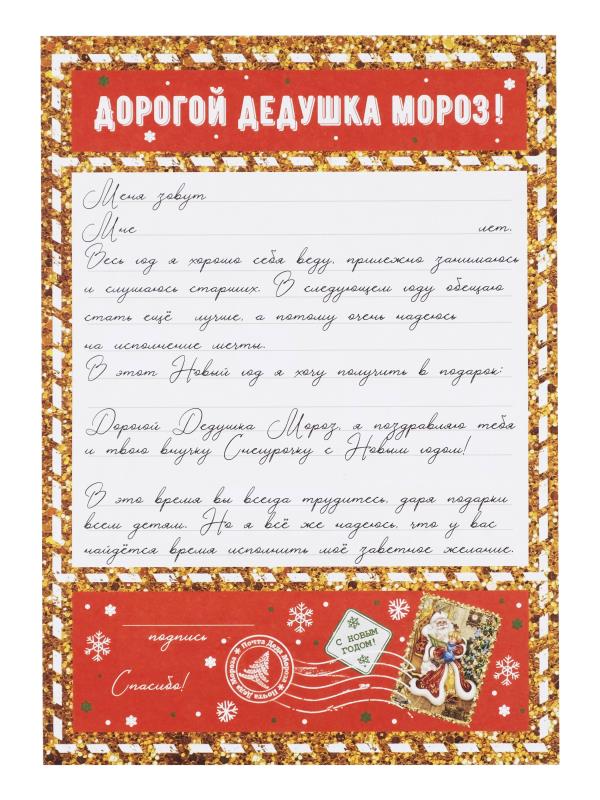 ДОРОГОЙ ДЕДУШКА МОРОЗ!
Меня зовут
Мне лет.
Весь год я хорошо себя веду, прилежно занимаюсь
и слушаюсь старших. В следующем году обещаю
стать ещё лучше, а потому очень надеюсь
на исполнение мечты.
В этот Новый год я хочу получить в подарок:
Дорогой Дедушка Мороз, я поздравляю тебя
и твою внучку Снегурочку с Новым годом!
В это время вы всегда трудитесь, даря подарки
всем детям. Но я всё же надеюсь, что у вас
найдётся время исполнить моё заветное желание.
подпись
Спасибо!
Почта Деда Мороза
Почта Деда Мороза
С НОВЫМ
ГОДОМ!